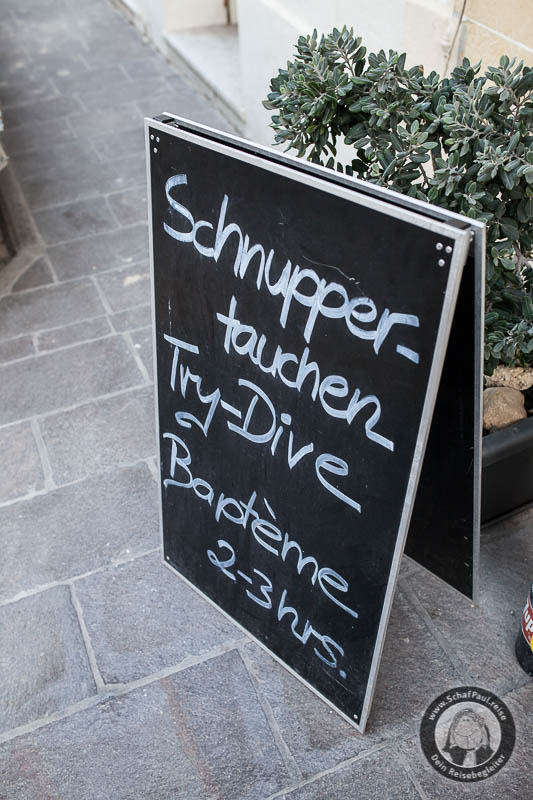 Schnupper-
tauchen
Try-Dive
Baptème
2-3hrs.
www.SchafPaul.reise
Dein Reisebegleiter